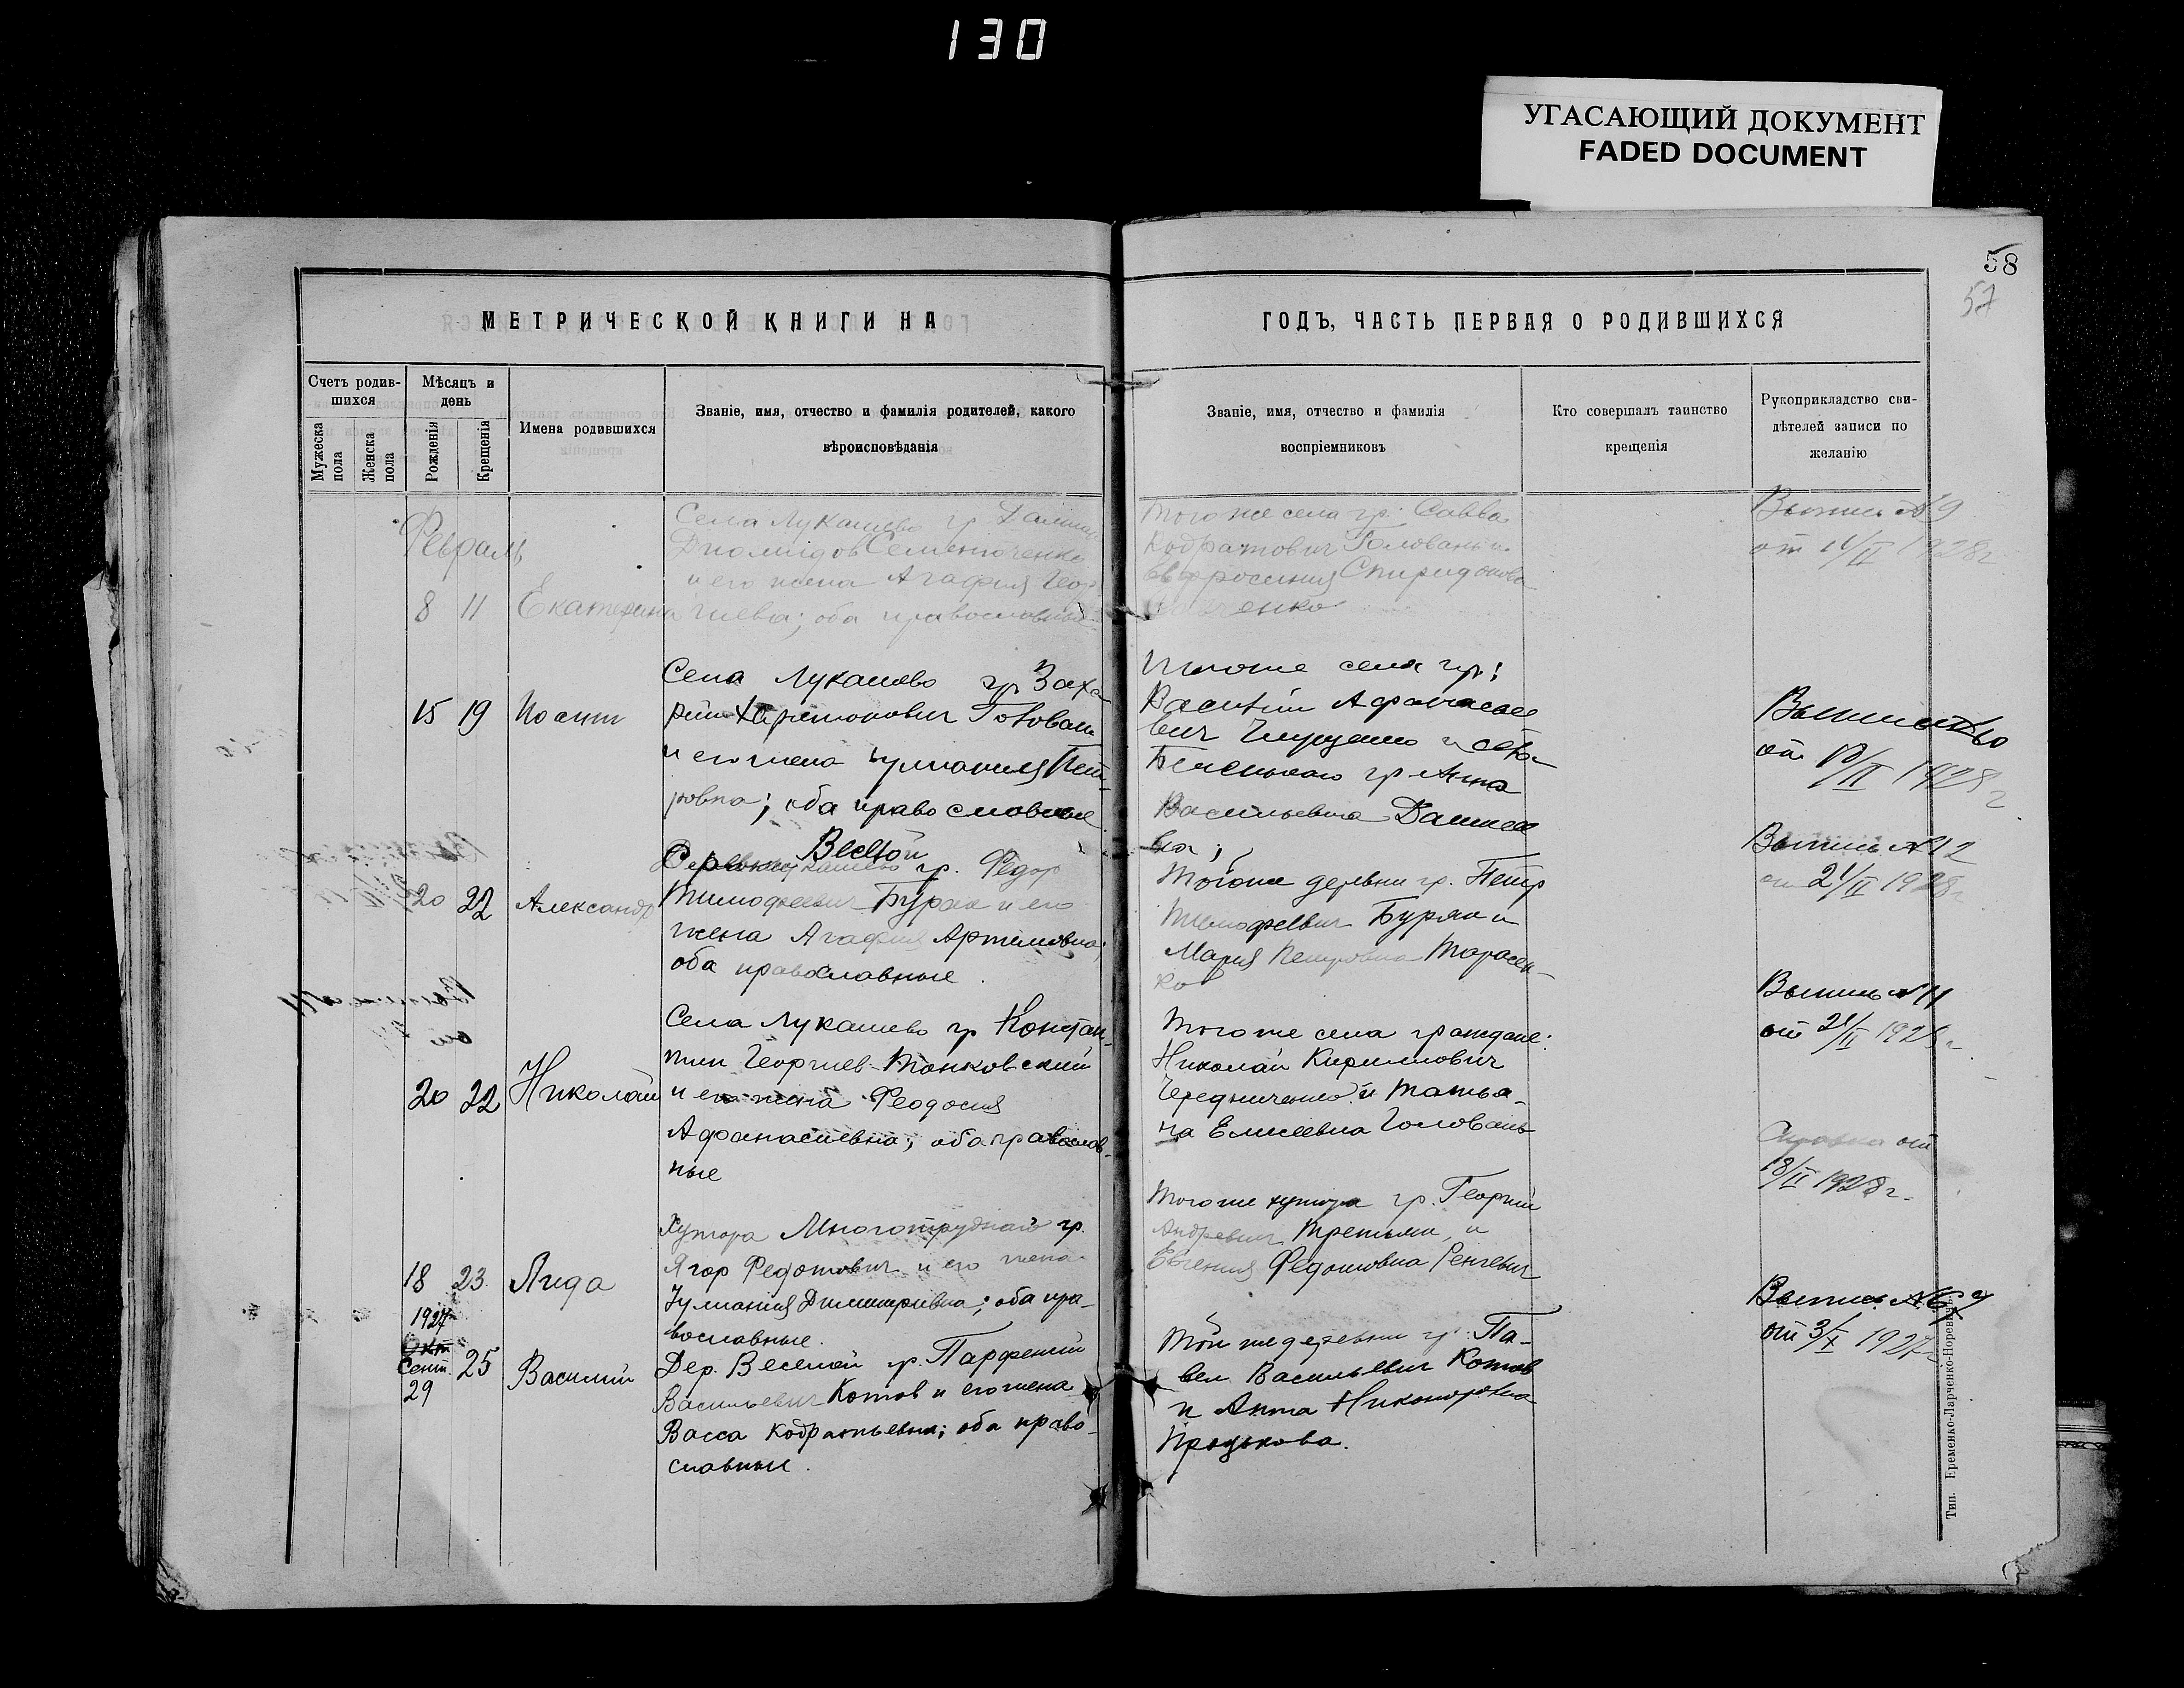 130
УГАСАЮЩИЙ ДОКУМЕНТ
FADED DOCUMENT
58
57
МЕТРИЧЕСКОЙ КНИГИ НА
ГОДЪ, ЧАСТЬ ПЕРВАЯ О РОДИВШИХСЯ
Счетъ родив-
шихся
Мужеска
пола
Женска
пола
Мѣсяцъ и
день
Рожденія
Крещенія
Имена родившихся
Званіе, имя, отчество и фамилія родителей, какого
вѣроисповѣданія
Званіе, имя, отчество и фамилія
воспріемниковъ
Кто совершалъ таинство
крещенія
Рукоприкладство сви-
дѣтелей записи по
желанію
Февраль
8 11 Екатерина
Села Лукашево гр.
Диомидов Семенюченко
и его жена Агафия Геор
гиева; оба православные
Того же села гр. Савва
Кодратович Головань и
Евфросиния Спиридонова
Выпись № 9
от II 1928 г
15 19 Иосип
Села Лукашево гр. Заха-
рий Харитонович Головань
и его жена Иулиания Пет-
ровна; оба православные
Того же села гр:
Василий Афанасие
вич и села
гр. Анна
Васильевна Данилe
ва;
Выпись
от II 1928 г
20 22 Александр
Деревни Веселой гр. Федор
Тимофеевич Буряк и его
жена Агафия Артемовна;
оба православные.
Тогоже деревни гр. Петр
Тимофеевич Буряк и
Мария Петровна Тарасен-
ко
Выпись № 12
от 21/II 1928 г
20 22 Николай
Села Лукашево гр. Констан-
тин Георгиев. Тонковский
и его жена Феодосия
Афанасиевна; оба православ-
ные
Того же села граждане:
Николай Кириллович
Чередниченко и Татья-
на Елисеевна Головань
Выпись № 11
от 21/II 1928 г
18 23 Лида
Хутора Многотрудной гр.
Ягор Федотович и его жена
Иулиания Димитриевна; оба пра-
вославные.
Того же хутора гр. Георгий
Андреевич Третьяк, и
Евгения Федотовна
Справка от
18/II 1928 г.
1927
Окт
Сент.
29
25 Василий
Дер. Веселой гр. Парфений
Васильевич Котов и его жена
Васса Кодратьевна; оба право-
славные.
Той же деревни гр. Па-
вел Васильевич Котов
и Анна Никоноровна
Выпись № 67
от 3/X 1927 г
Тип. Еременко-Ларченко-Норевичъ